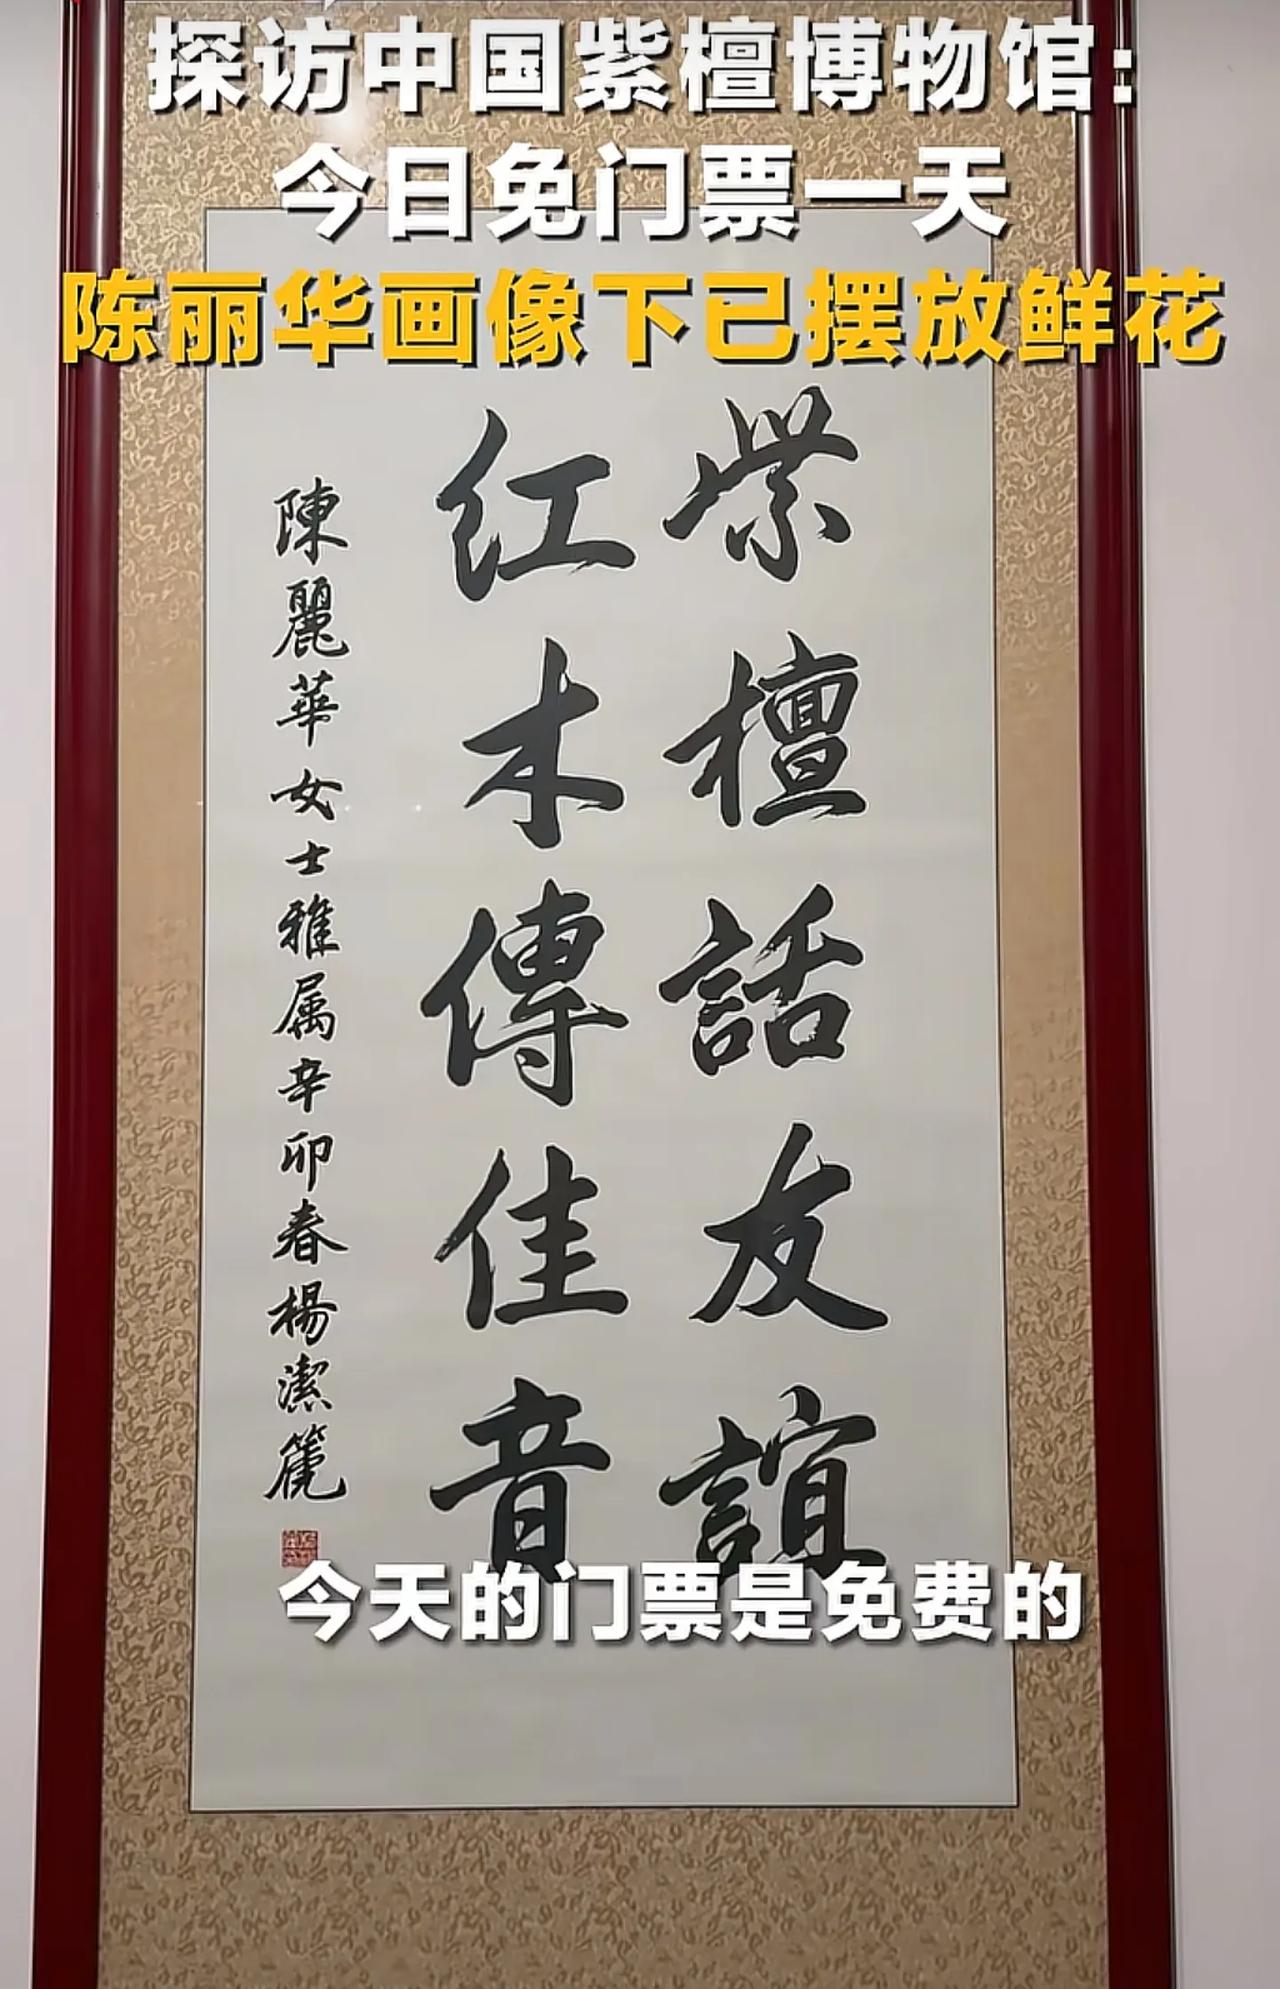 探访中国紫檀博物馆：
今日免门票一天
陈丽华画像下已摆放鲜花
紫檀話友誼
红木傳佳音
陳麗華女士雅属辛卯春楊潔篪
今天的门票是免费的